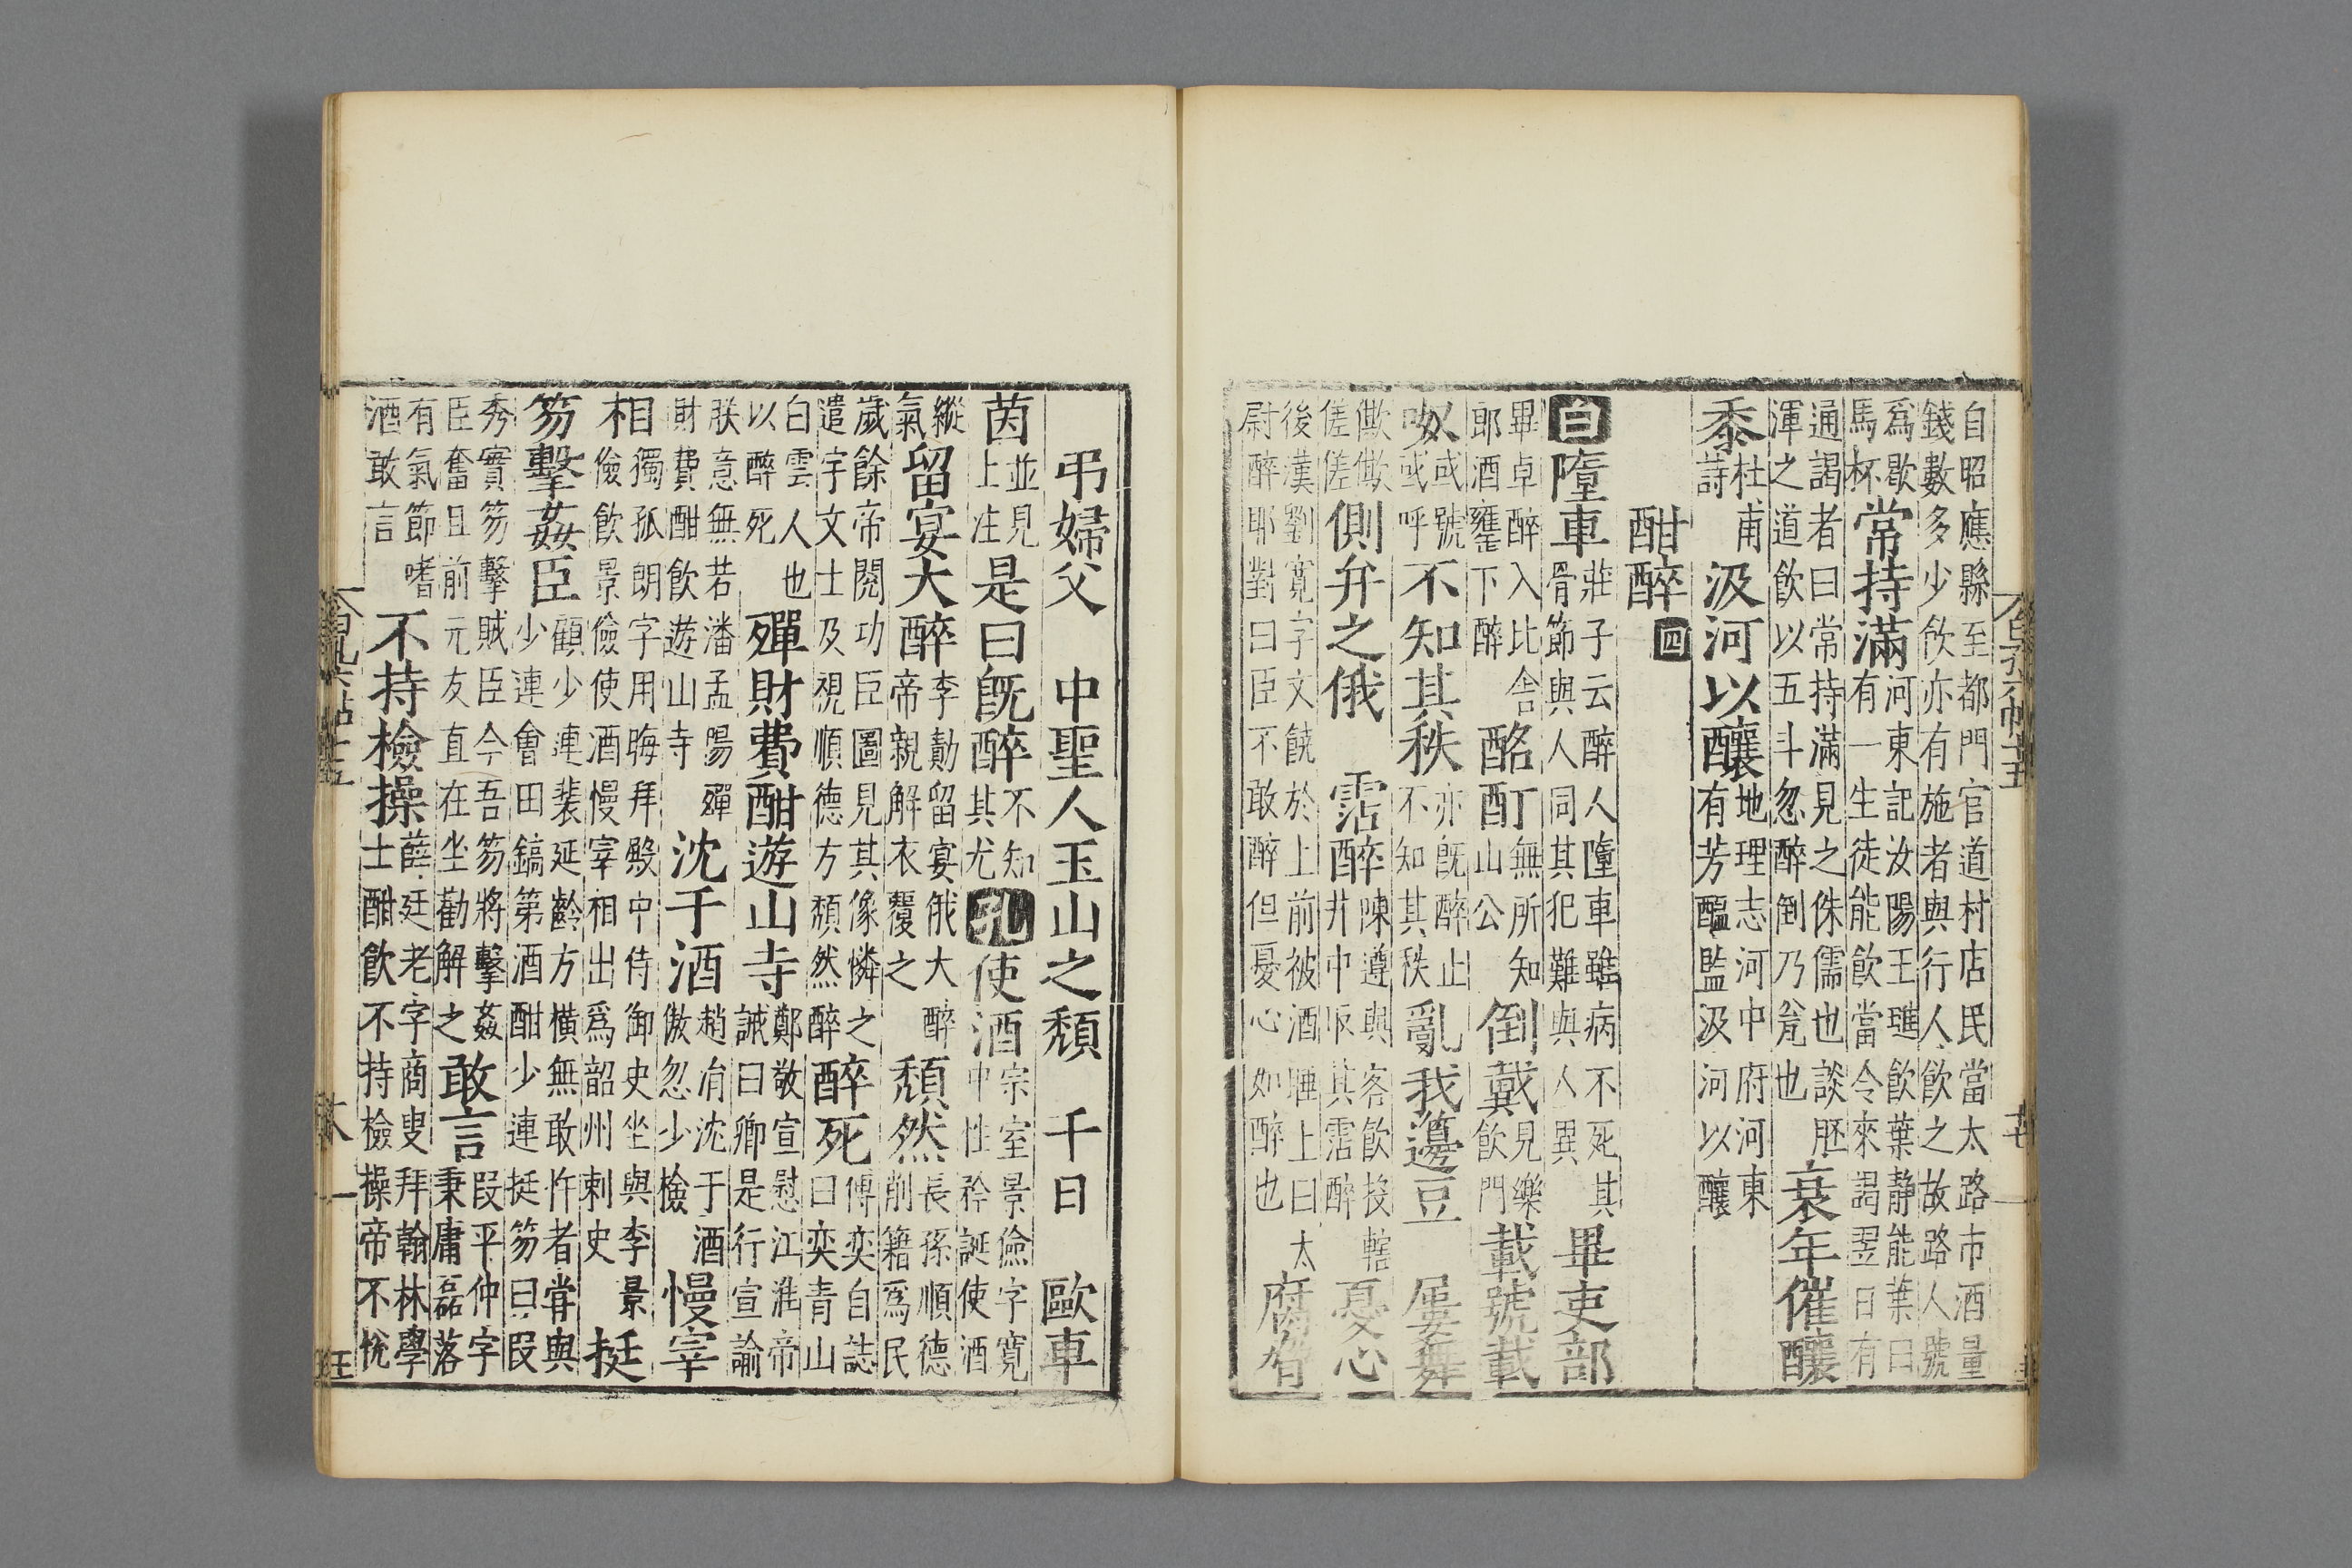 自昭應縣至都門官道村店民當大路市酒量
錢數多少飲亦有施者與行人飲之故路人號
爲歇馬杯常持滿河東記汝陽王璡飲葉静能葉曰有一生徒能飲當令來謁翌日有
通謁者曰常持滿見之侏儒也談胚渾之道飲以五斗忽醉倒乃瓮也衰年催釀
黍杜甫詩汲河以釀地理志河中府河東有芳醞監汲河以釀
酣醉四
白墮車莊子云醉人墮車雖病不死其骨節與人同其犯難與人異畢吏部
畢卓醉入比舍耶酒甕下醉酩酊無所知山公倒戴見樂飲門載號載
呶或號或呼不知其秩亦旣醉止不知其秩亂我籩豆屢舞
僛僛傞傞側弁之俄霑醉陳遵與客飲投轄井中㕞其霑醉憂心
後漢劉寬字文饒於上前被酒睡上曰太尉醉耶對曰臣不敢醉但憂心如醉也腐脅
弔婦父 中聖人玉山之頹 千日 歐車
茵並見上注是曰旣醉不知其尤孔使酒宗室景儉字寛中性矜誕使酒
縱氣留宴大醉李勣留宴俄大醉帝親解衣覆之頹然長孫順德削籍爲民
歲餘帝閱功臣圖見其像憐之遣宇文士及視順德方頹然醉醉死傅奕自誌曰奕青山
白雲人也以醉死殫財費酣遊山寺鄭敬宣慰江淮帝誡曰卿是行宣諭
朕意無若潘孟陽殫財費酣飲遊山寺沈于酒趙涓沈于酒傲忽少檢慢宰
相獨孤朗字用晦拜殿中侍御史坐與李景儉飲景儉使酒慢宰相出爲韶州刺史挺
笏擊姦臣顧少連裴延齡方橫無敢忤者嘗與少連會田鎬第酒酣少連挺笏曰段
秀實笏擊賊臣今吾笏將擊姦臣奮且前元友直在坐勸解之敢言段平仲字秉庸磊落
有氣節嗜酒敢言不持檢操薛廷老字商叟拜翰林學士酣飲不持檢操帝不悅